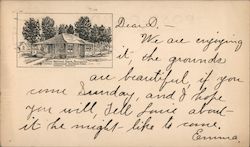 Dear D. –
We are enjoying
it, the grounds
are beautiful, if you
come Sunday, and I hope
you will, Tell about
it he might like to come.
Emma